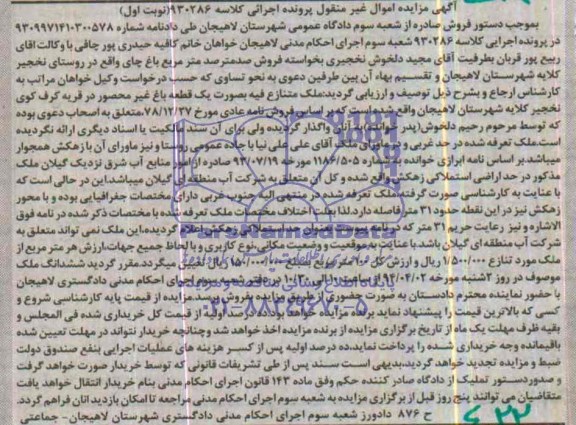 آگهی مزایده اموال غیر منقول پرونده اجرائی کلاسه ۹۳۰۲۸۶(نوبت اول)
بموجب دستور فروش صادره از شعبه سوم دادگاه عمومی شهرستان لاهیجان طی دادنامه شماره ۹۳۰۹۹۷۱۴۱۰۳۰۰۵۷۸
در پرونده اجرایی کلاسه ۹۳۰۲۸۶ شعبه سوم اجرای احکام مدنی لاهیجان خواهان خانم کافیه حیدری پور چافی با وکالت اقای
ربیع پور قربان بطرفیت آقای مجید دلخوش نخجیری بخواسته فروش صدمترصد متر مربع باغ چای واقع در روستای نخجیر
کلایه شهرستان لاهیجان و تقسیم بهاء آن بین طرفین دعوی به نحو تساوی که حسب درخواست وکیل خواهان مراتب به
کارشناس ارجاع و بشرح ذیل توصیف و ارزیابی گردید:ملک متنازع فیه بصورت یک قطعه باغ غیر محصور در قریه کرف کوی
نخجیر کلایه شهرستان لاهیجان واقع شده است که بر اساس فروش نامه عادی مورخ ۷۸/۱۲/۲۷ متعلق به اصحاب دعوی بوده
که توسط مرحوم رحیم دلخوش(پدر خوانده) به آنان واگذار گردیده ولی برای آن سند مالکیت یا اسناد دیگری ارائه نگردیده
است.ملک تعرفه شده در حد غربی و در ماورای ملک آقای علی علی نیا با جاده عمومی روستا و نیز ماورای آن با زهکش همجوار
میباشد.بر اساس نامه ابرازی خوانده به شماره ۱۱۸۶/۵۰۵ مورخ ۹۳/۰۷/۱۹ صادره از امور منابع آب شرق نزدیک گیلان ملک
مذکور در حد اراضی استملاکی زهکش واقع شده و کل آن متعلق به شرکت آب منطقه ای گیلان میباشد.این در حالی است که
با عنایت به کارشناسی صورت گرفته ملک تعرفه شده در منتهی الیه جنوب غربی دارای مختصات جغرافیایی بوده و با محور
زهکش نیز در این نقطه حدود ۳۱ متر فاصله دارد.لذا بعلت اختلاف مختصات ملک تعرفه شده با مختصات ذکر شده در نامه فوق
الاشاره و نیز رعایت حریم ۳۱ متر که در نامه پیوست بعنوان حد استملاکی زهکش اعلام گردیده،این ملک نمی تواند متعلق به
شرکت آب منطقه ای گیلان باشد.با عنایت به موقعیت و وضعیت مکانی،نوع کاربری و با لحاظ جمیع جهات،ارزش هر متر مربع از
ملک مورد تنازع ۱/۵۰۰/۰۰۰ ریال و ارزش کل ۱۰۰ متر مربع بمبلغ ۱۵۰/۰۰۰/۰۰۰ ریال تعیین میگردد.مقرر گردید ششدانگ ملک
موصوف در روز ۳شنبه مورخه ۹۴/۰۴/۰۲ در دفتر شعبه سوم اجرای احکام مدنی دادگستری لاهیجان
با حضور نماینده محترم دادستان به صورت حضوری از طریق مزایده بفروش برسد.مزایده از قیمت پایه کارشناسی شروع و
کسی که بالاترین قیمت را پیشنهاد نماید برنده مزایده خواهد بود.ده درصد اولیه از قیمت کل خریداری شده فی المجلس و
بقیه ظرف مهلت یک ماه از تاریخ برگزاری مزایده از برنده مزایده اخذ خواهد شد وچنانچه خریدار نتواند در مهلت تعیین شده
باقیمانده وجه خریداری شده را پرداخت نماید،ده درصد اولیه پس از کسر هزینه های عملیات اجرایی بنفع صندوق دولت
ضبط و مزایده تجدید خواهد گردید،بدیهی است سند پس از طی تشریفات قانونی که توسط خریدار صورت خواهد گرفت
و صدوردستور تملیک از دادگاه صادر کننده حکم وفق ماده ۱۴۳ قانون اجرای احکام مدنی بنام خریدار انتقال خواهد یافت
متقاضیان می توانند پنج روز قبل از برگزاری مزایده به شعبه سوم اجرای احکام مدنی مراجعه تا امکان بازدید انان فراهم گردد.
ح ۸۷۶ دادورز شعبه سوم اجرای احکام مدنی دادگستری شهرستان لاهیجان- جماعتی